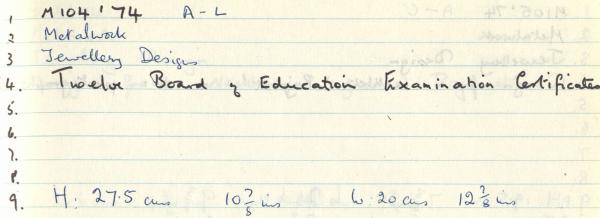 1 M104'74 A-L
2 Metalwork
3 Jewellery Designs
4. Twelve Board of Education Examination Certificates
5.
6.
7.
8.
9. H: 27.5 cms 10 7/8 ins W: 20 cms 12 7/8 ins